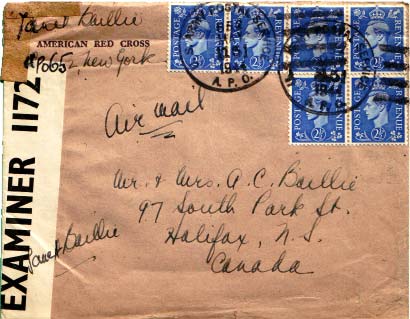 Janet Baillie
AMERICAN RED CROSS
APO 652, New York
Air mail
Mr. & Mrs. A.C. Baillie
97 South Park St.
Halifax, N.S.
Canada
Janet Baillie
EXAMINER 1172
POSTAGE REVENUE
2½
POSTAGE REVENUE
2½
POSTAGE REVENUE
POSTAGE REVENUE
POSTAGE REVENUE
2½
POSTAGE REVENUE
2½
A.P.O.
A.P.O.